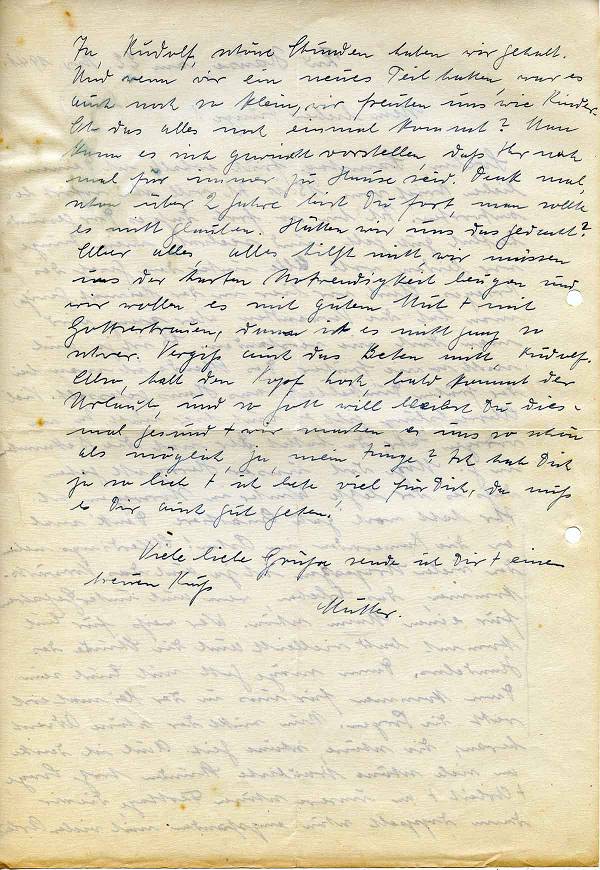 Ja, Rudolf, schöne Stunden haben wir gehabt.
Und wenn wir ein neues Teil hatten, war es
auch noch so klein, wir freuten uns wie Kinder.
Ob das alles noch einmal kommt? Man
kann es sich garnicht vorstellen, daß Ihr noch
mal für immer zu Hause seid. Denk mal,
schon über 2 Jahre bist Du fort, man sollte
es nicht glauben. Hätten wir uns das gedacht?
Aber alles, alles hilft nicht, wir müssen
uns der harten Notwendigkeit beugen und
wir wollen es mit gutem Mut + mit
Gottvertrauen, dann ist es nicht ganz so
schwer. Vergiß auch das Beten nicht, Rudolf.
Also, halt den Kopf hoch, bald kommt der
Urlaub, und so Gott will bleibst Du dies-
mal gesund + wir machen es uns so schön
als möglich, ja, mein Junge? Ich hab Dich
ja so lieb + ich bete viel für Dich, da muß
es Dir auch gut gehen!
Viele liebe Grüße sende ich Dir + einen
treuen Kuß
Mutter.